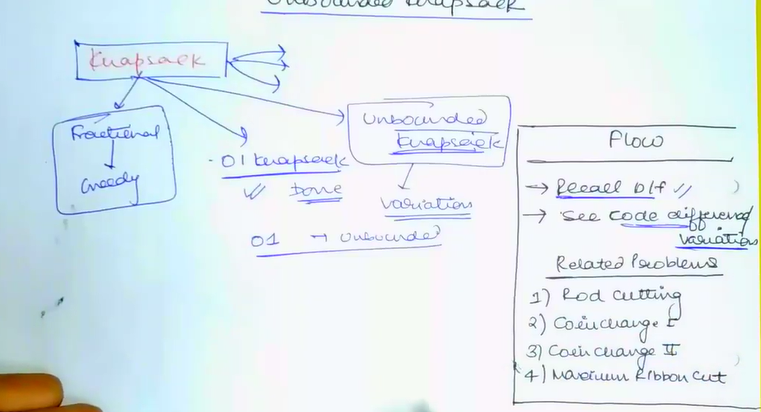 Unbounded Knapsack
Knapsack
Fractional
Greedy
01 Knapsack
Done
Unbounded
Knapsack
variation
01 → Unbounded
Flow
→ Recall b/f
→ See Code difference
variation
Related Problems
1) Rod Cutting
2) Coin change I
3) Coin change II
4) Maximum Ribbon Cut